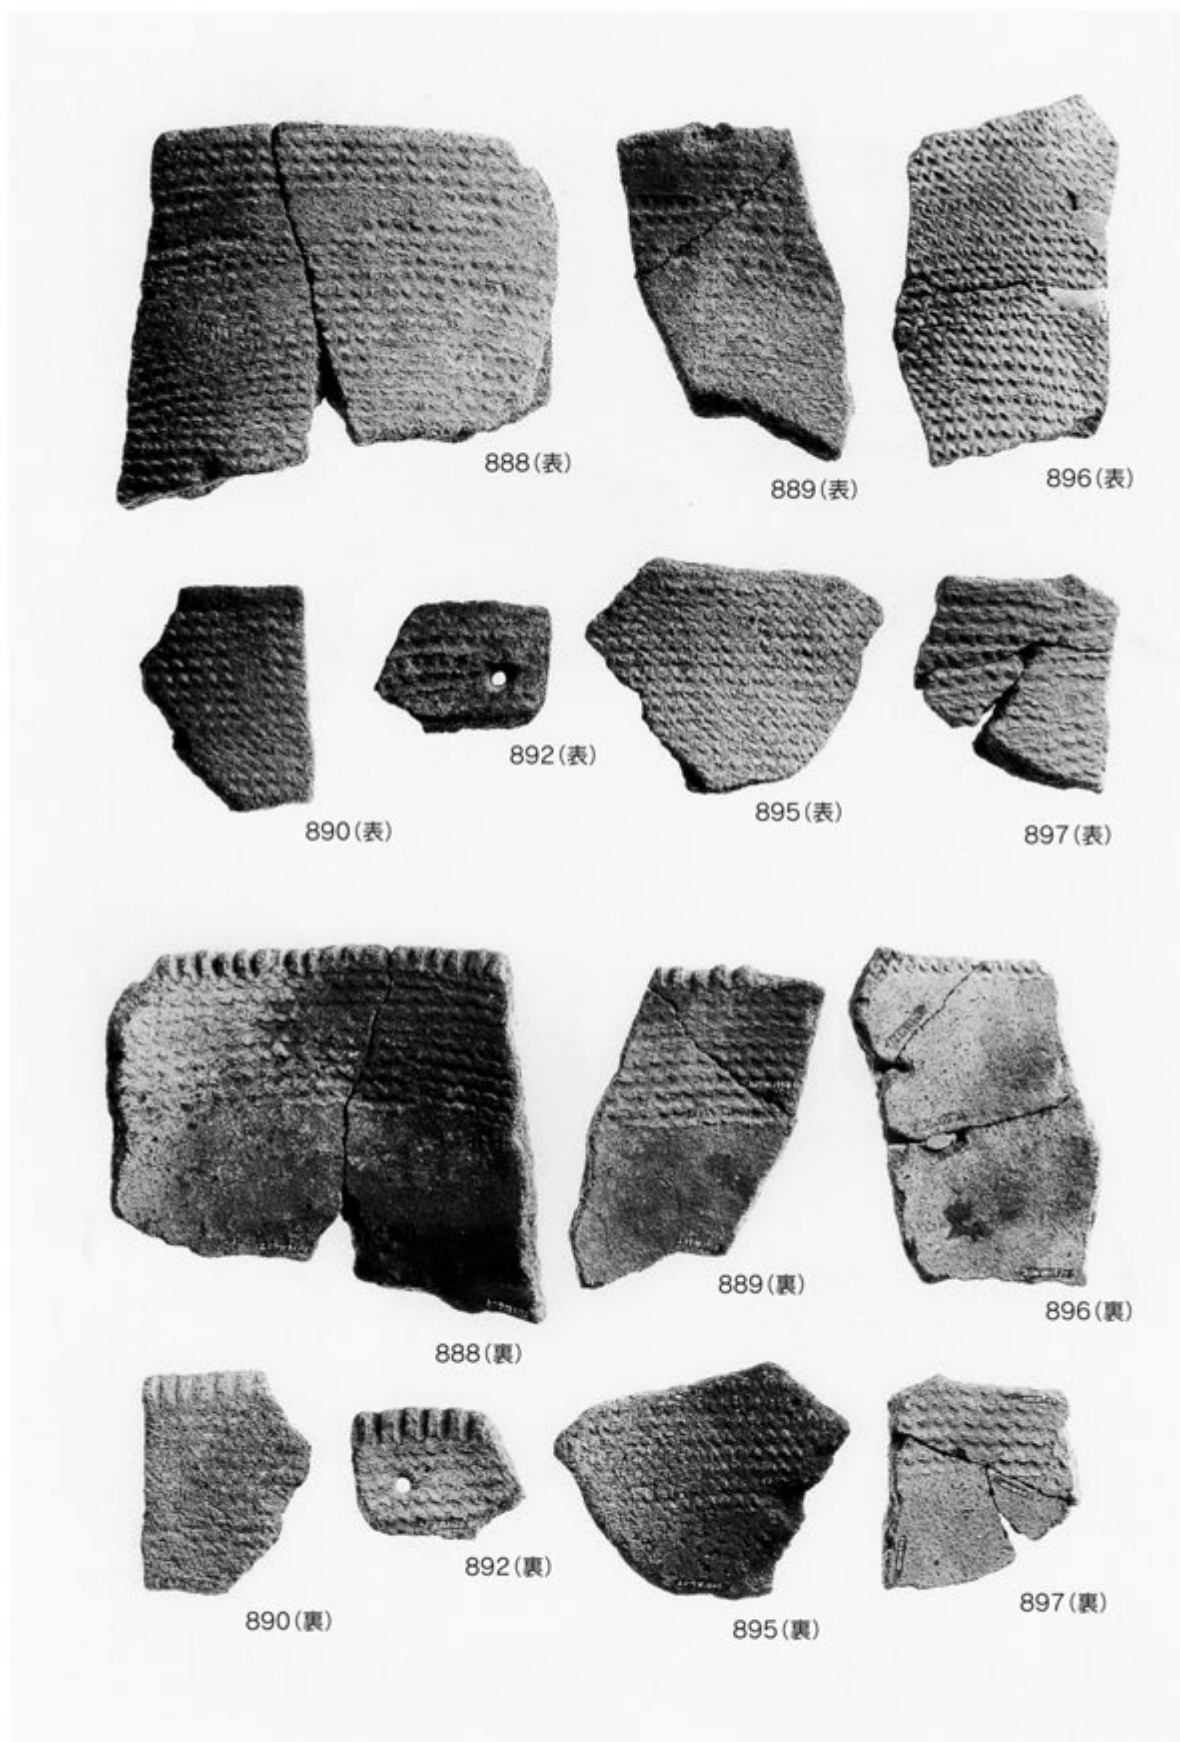 888(表)
889(表)
896(表)
890(表)
892(表)
895(表)
897(表)
888(裏)
889(裏)
896(裏)
890(裏)
892(裏)
895(裏)
897(裏)